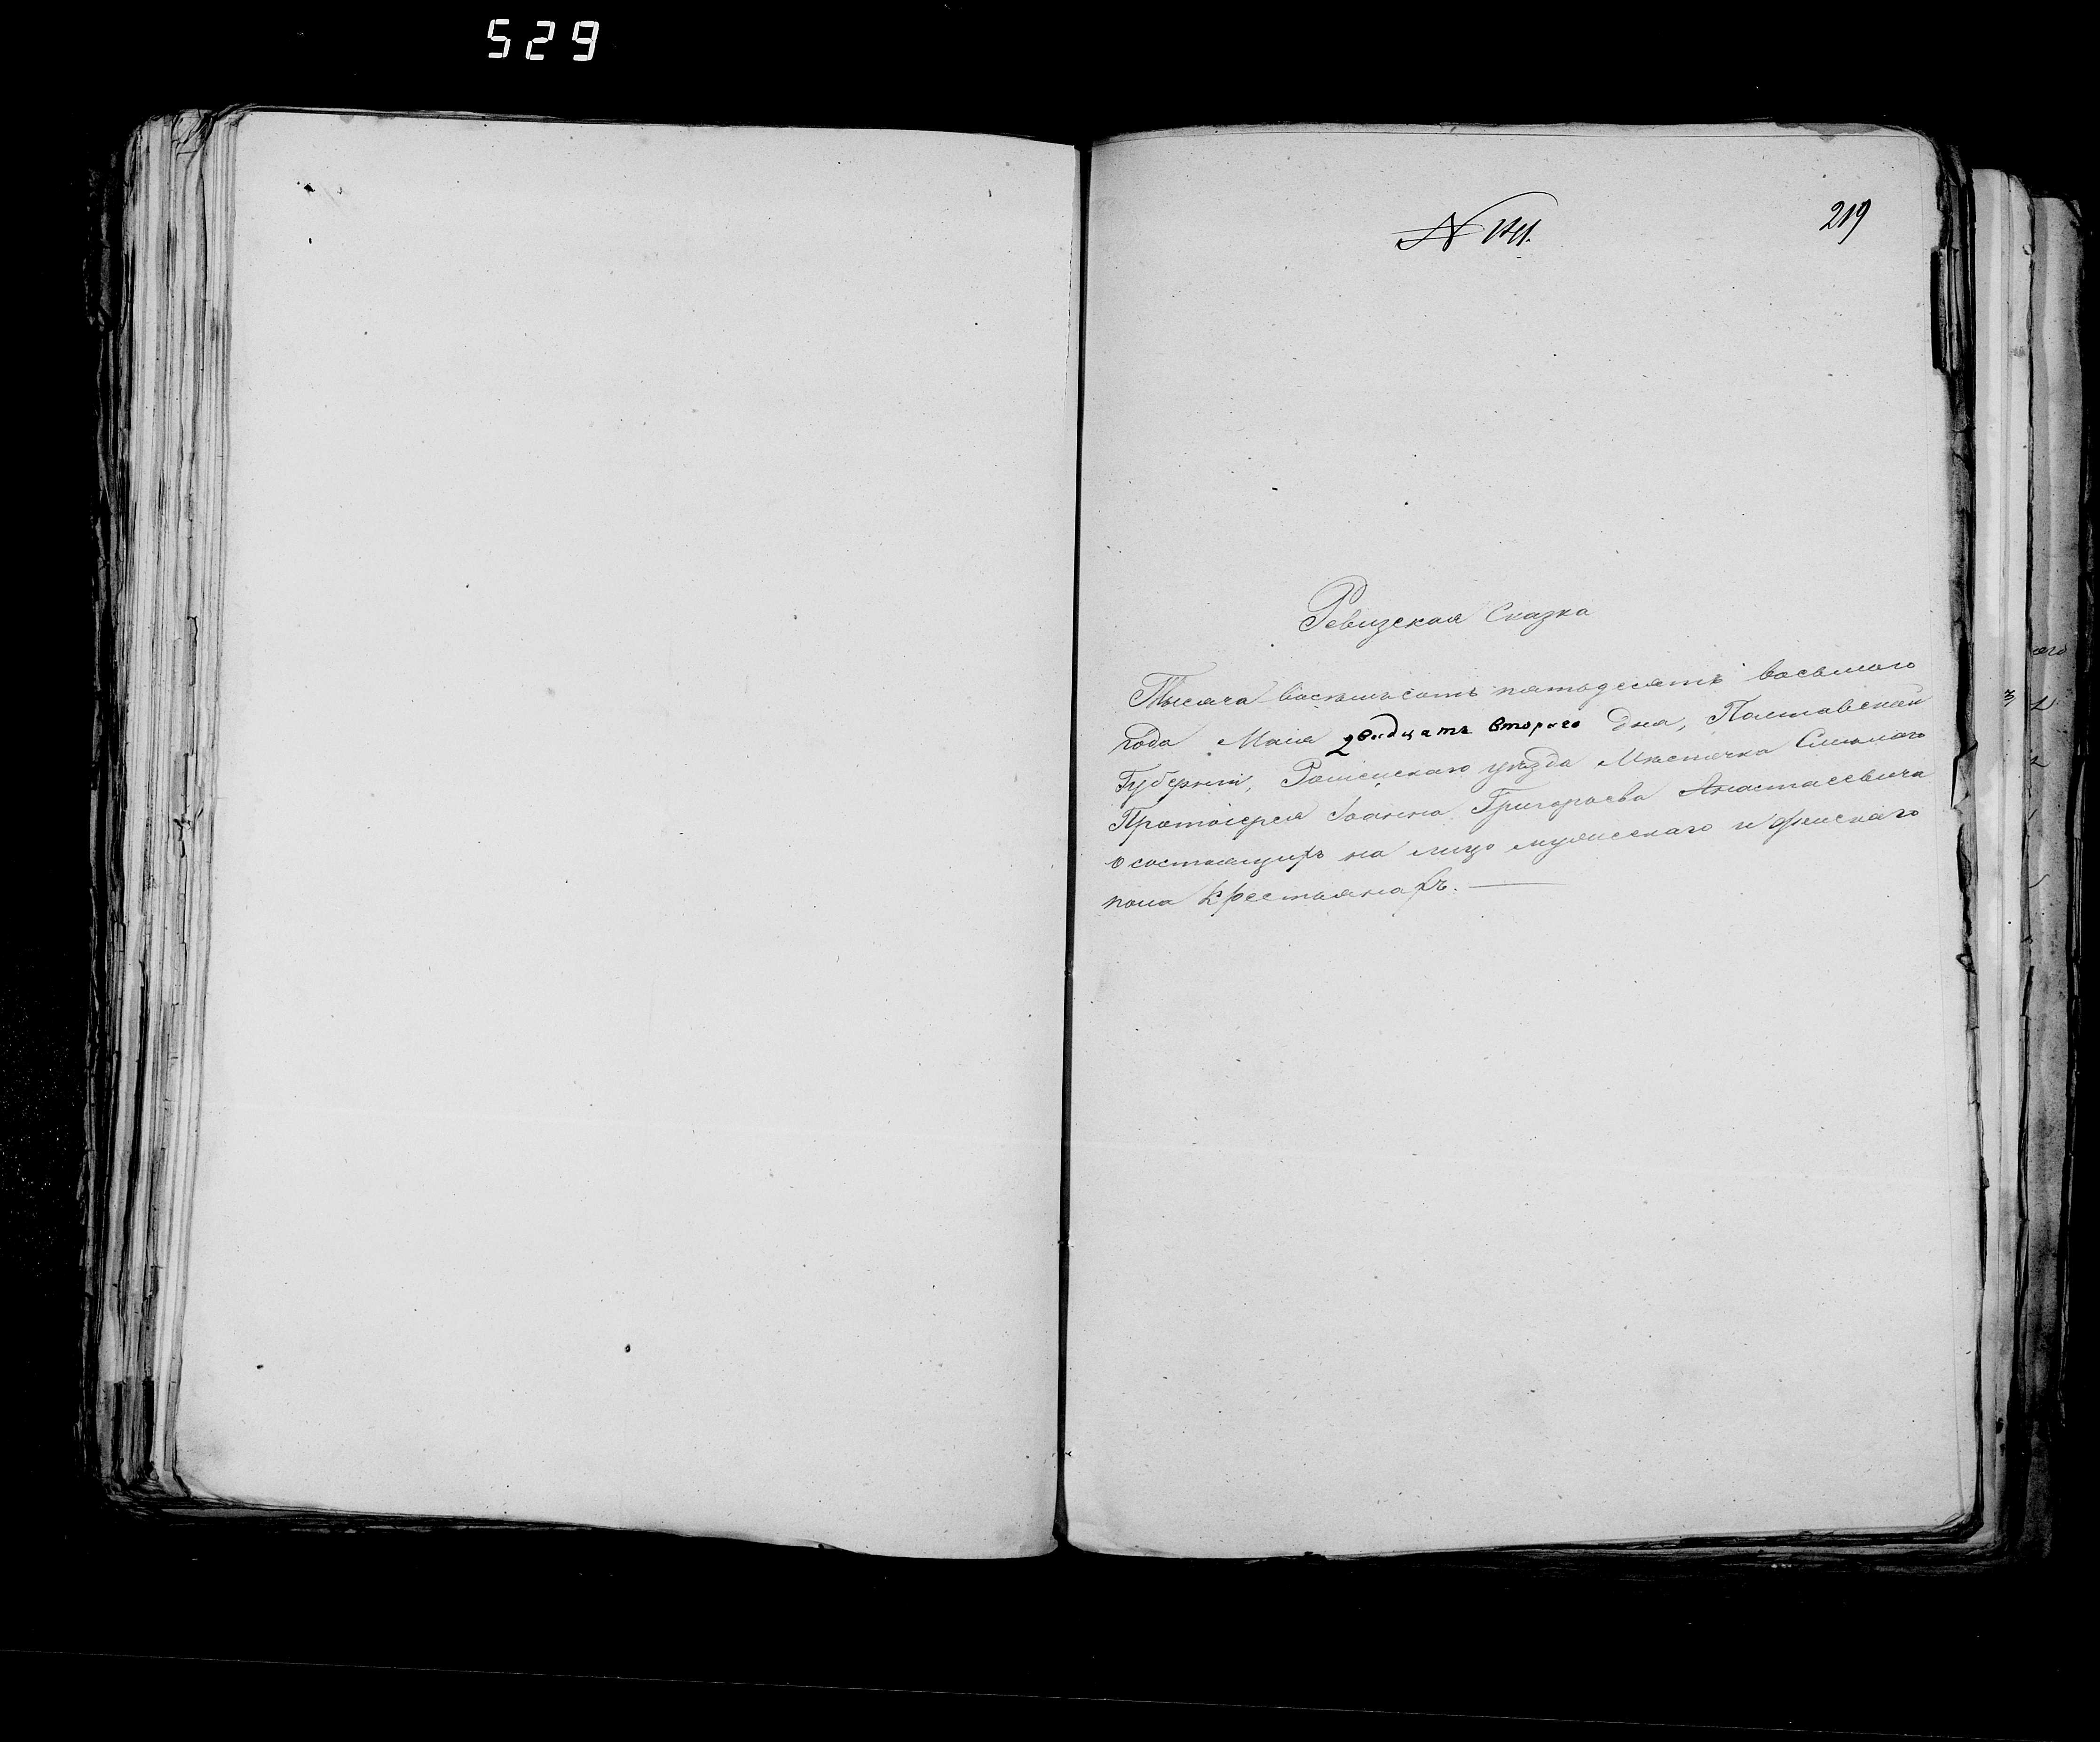 529
219
№ 141.
Ревизская Сказка
Тысяча восемьсотъ пятьдесятъ восьмого
года Маія двадцать второго дня, Полтавской
Губерніи, Роменскаго уѣзда Мѣстечка Смѣлаго
Протоіерея Іоанна Григорьева Анастасевича
о состоящихъ на лицо мужескаго и женскаго
пола Крестьянахъ.